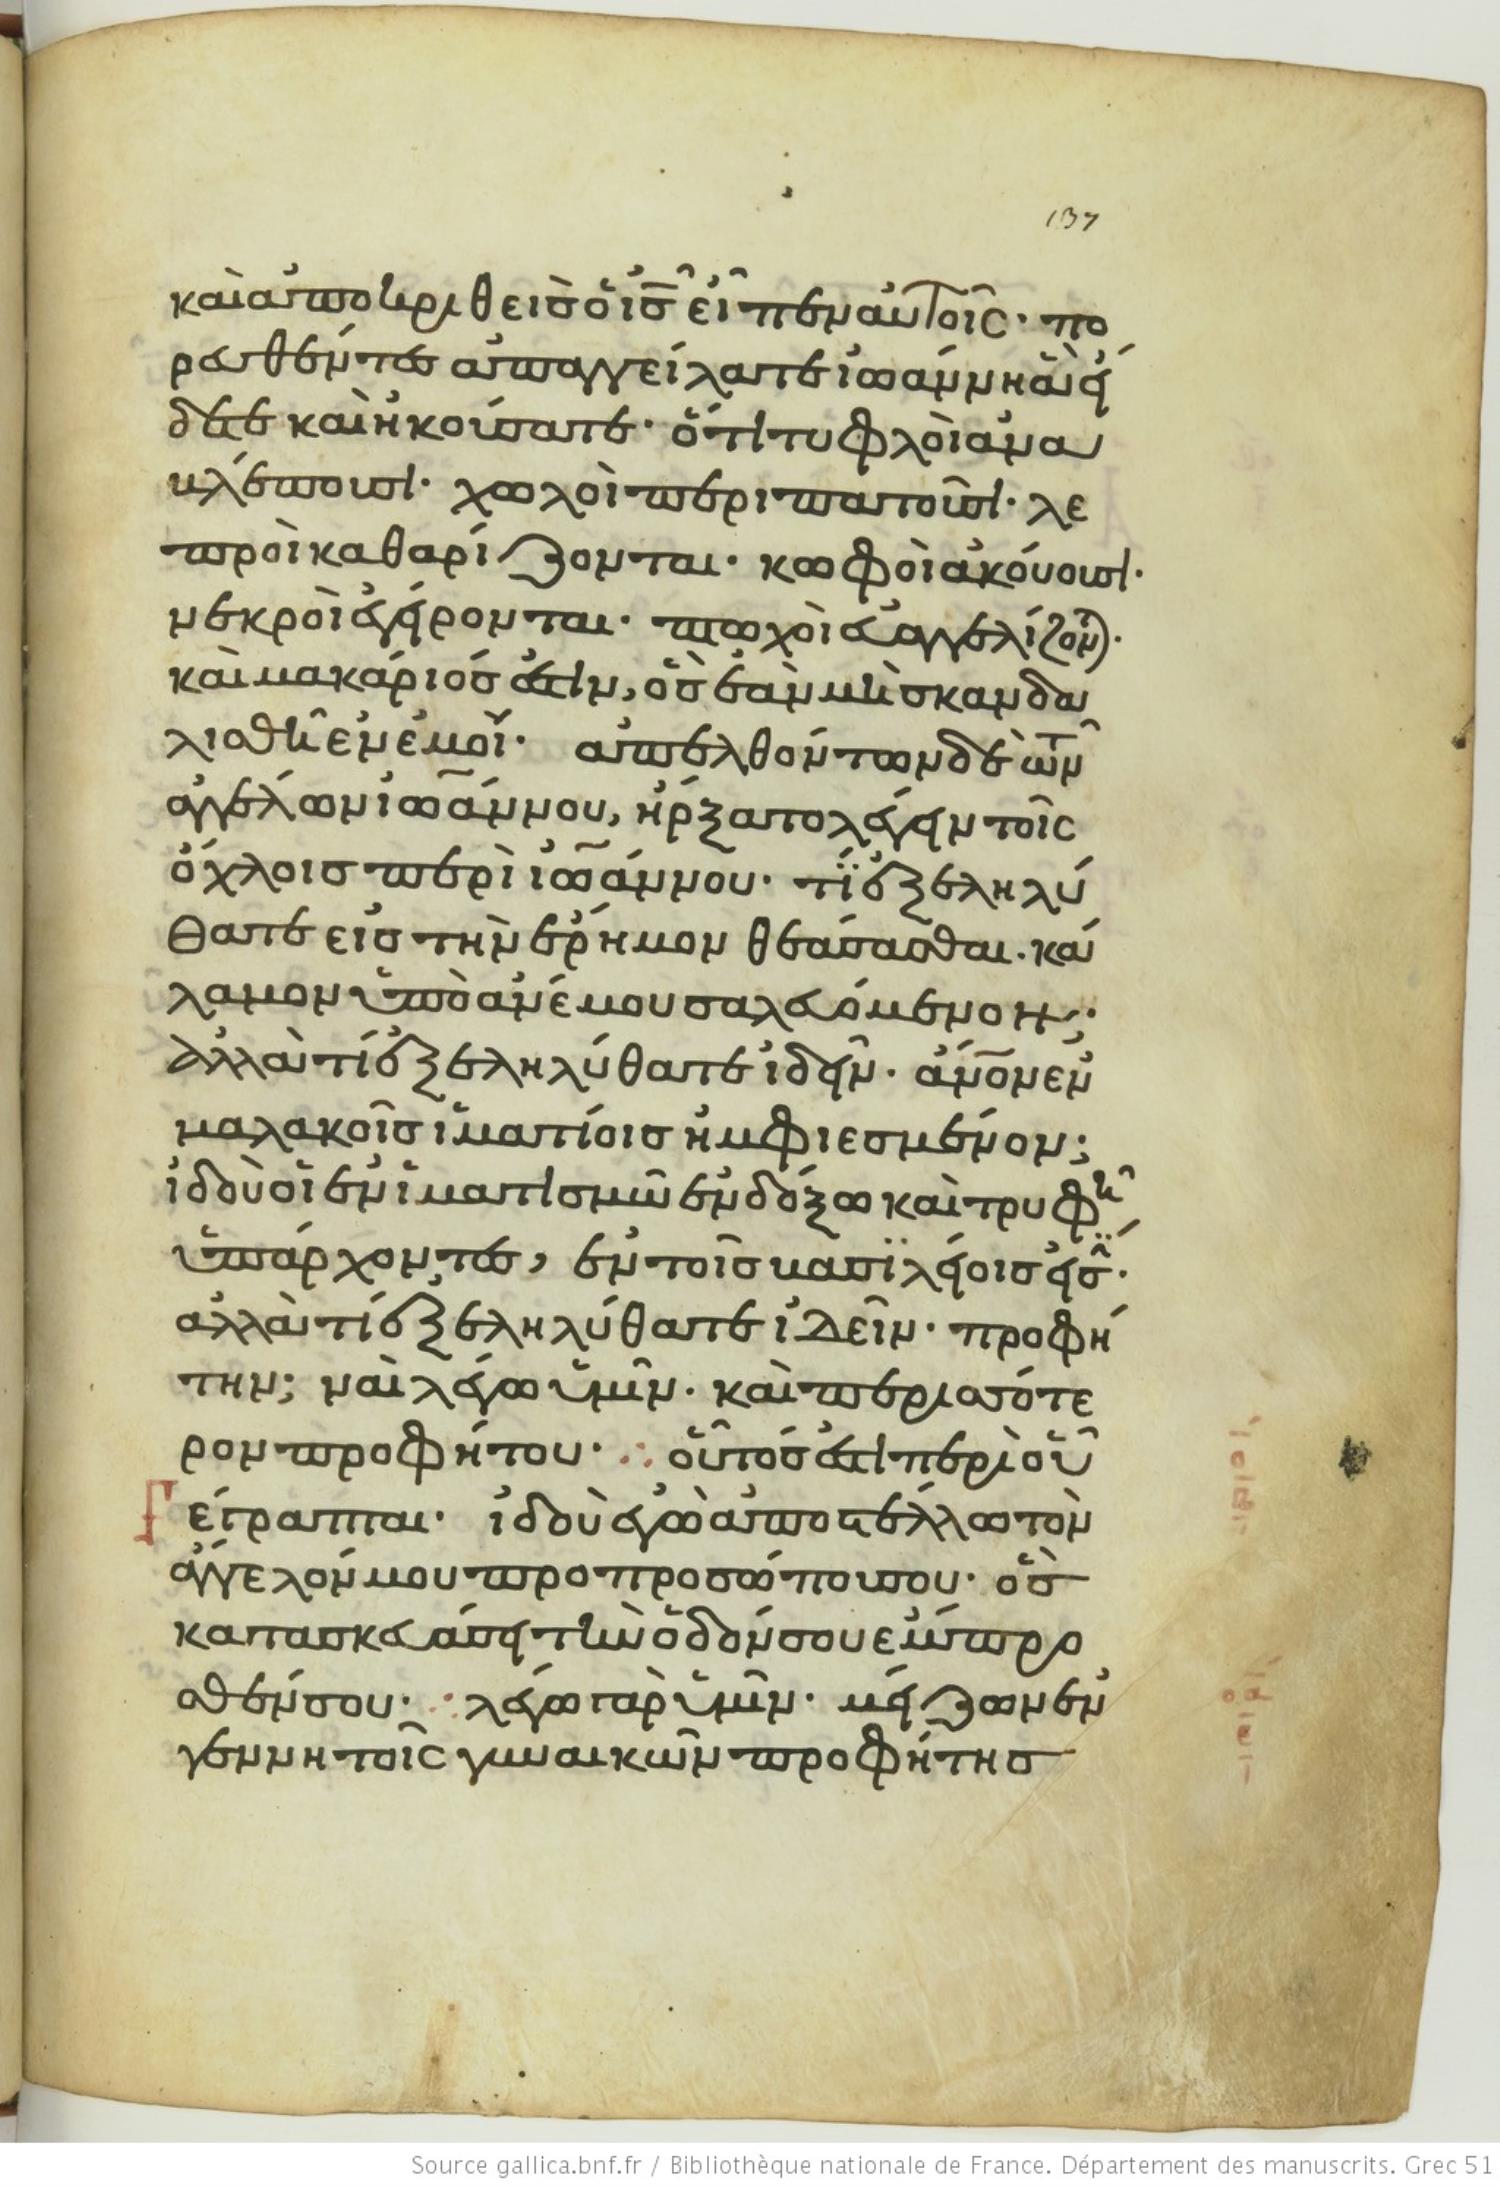 137
καὶ ἀποκριθεὶσ ὁ ἰσ̅ εἶπεν αὐτοῖς· πο
ρευθέντεσ ἀπαγγείλατε ἰωάννη ἃ εἴ
δετε καὶ ἠκούσατε· ὅτι τυφλοὶ ἀνα
βλέπουσι· χωλοὶ περιπατοῦσι· λε
προὶ καθαρίζονται· κωφοὶ ἀκούουσι·
νεκροὶ ἐγείρονται· πτωχοὶ εὐαγγελίζον)·
καὶ μακάριόσ ἐστιν, ὃσ ἐὰν μὴ σκανδα
λισθῆ ἐν ἐμοί· ἀπελθόντων δὲ τῶν
ἀγγέλων ἰωάννου, ἤρξατο λέγειν τοῖς
ὄχλοισ περὶ ἰωάννου· τί ἐξεληλύ
θατε εἰσ τὴν ἔρημον θεάσασθαι· κά
λαμον ὑπὸ ἀνέμου σαλευόμενον;
ἀλλὰ τί ἐξεληλύθατε ἰδεῖν· ἀνο̅ν ἐν
μαλακοῖσ ἱματίοισ ἠμφιεσμένον;
ἰδοὺ οἱ ἐν ἱματισμῶ ἐνδόξω καὶ τρυφῆ
ὑπάρχοντεσ, ἐν τοῖσ βασιλείοισ εἰσί·
ἀλλὰ τί ἐξεληλύθατε ἰδεῖν· προφή
την; ναὶ λέγω ὑμῖν· καὶ περισσότε
ρον προφήτου· οὗτόσ ἐστι περὶ οὗ
Γέγραπται· ἰδοὺ ἐγὼ ἀποστέλλω τὸν
ἄγγελόν μου προ προσώπου σου· ὃσ
κατασκευάσει τὴν ὁδόν σου ἔμπρο
σθέν σου· λέγω γὰρ ὑμῖν· μείζων ἐν
γεννητοῖς γυναικῶν προφήτησ
Source gallica.bnf.fr / Bibliothèque nationale de France. Département des manuscrits. Grec 51